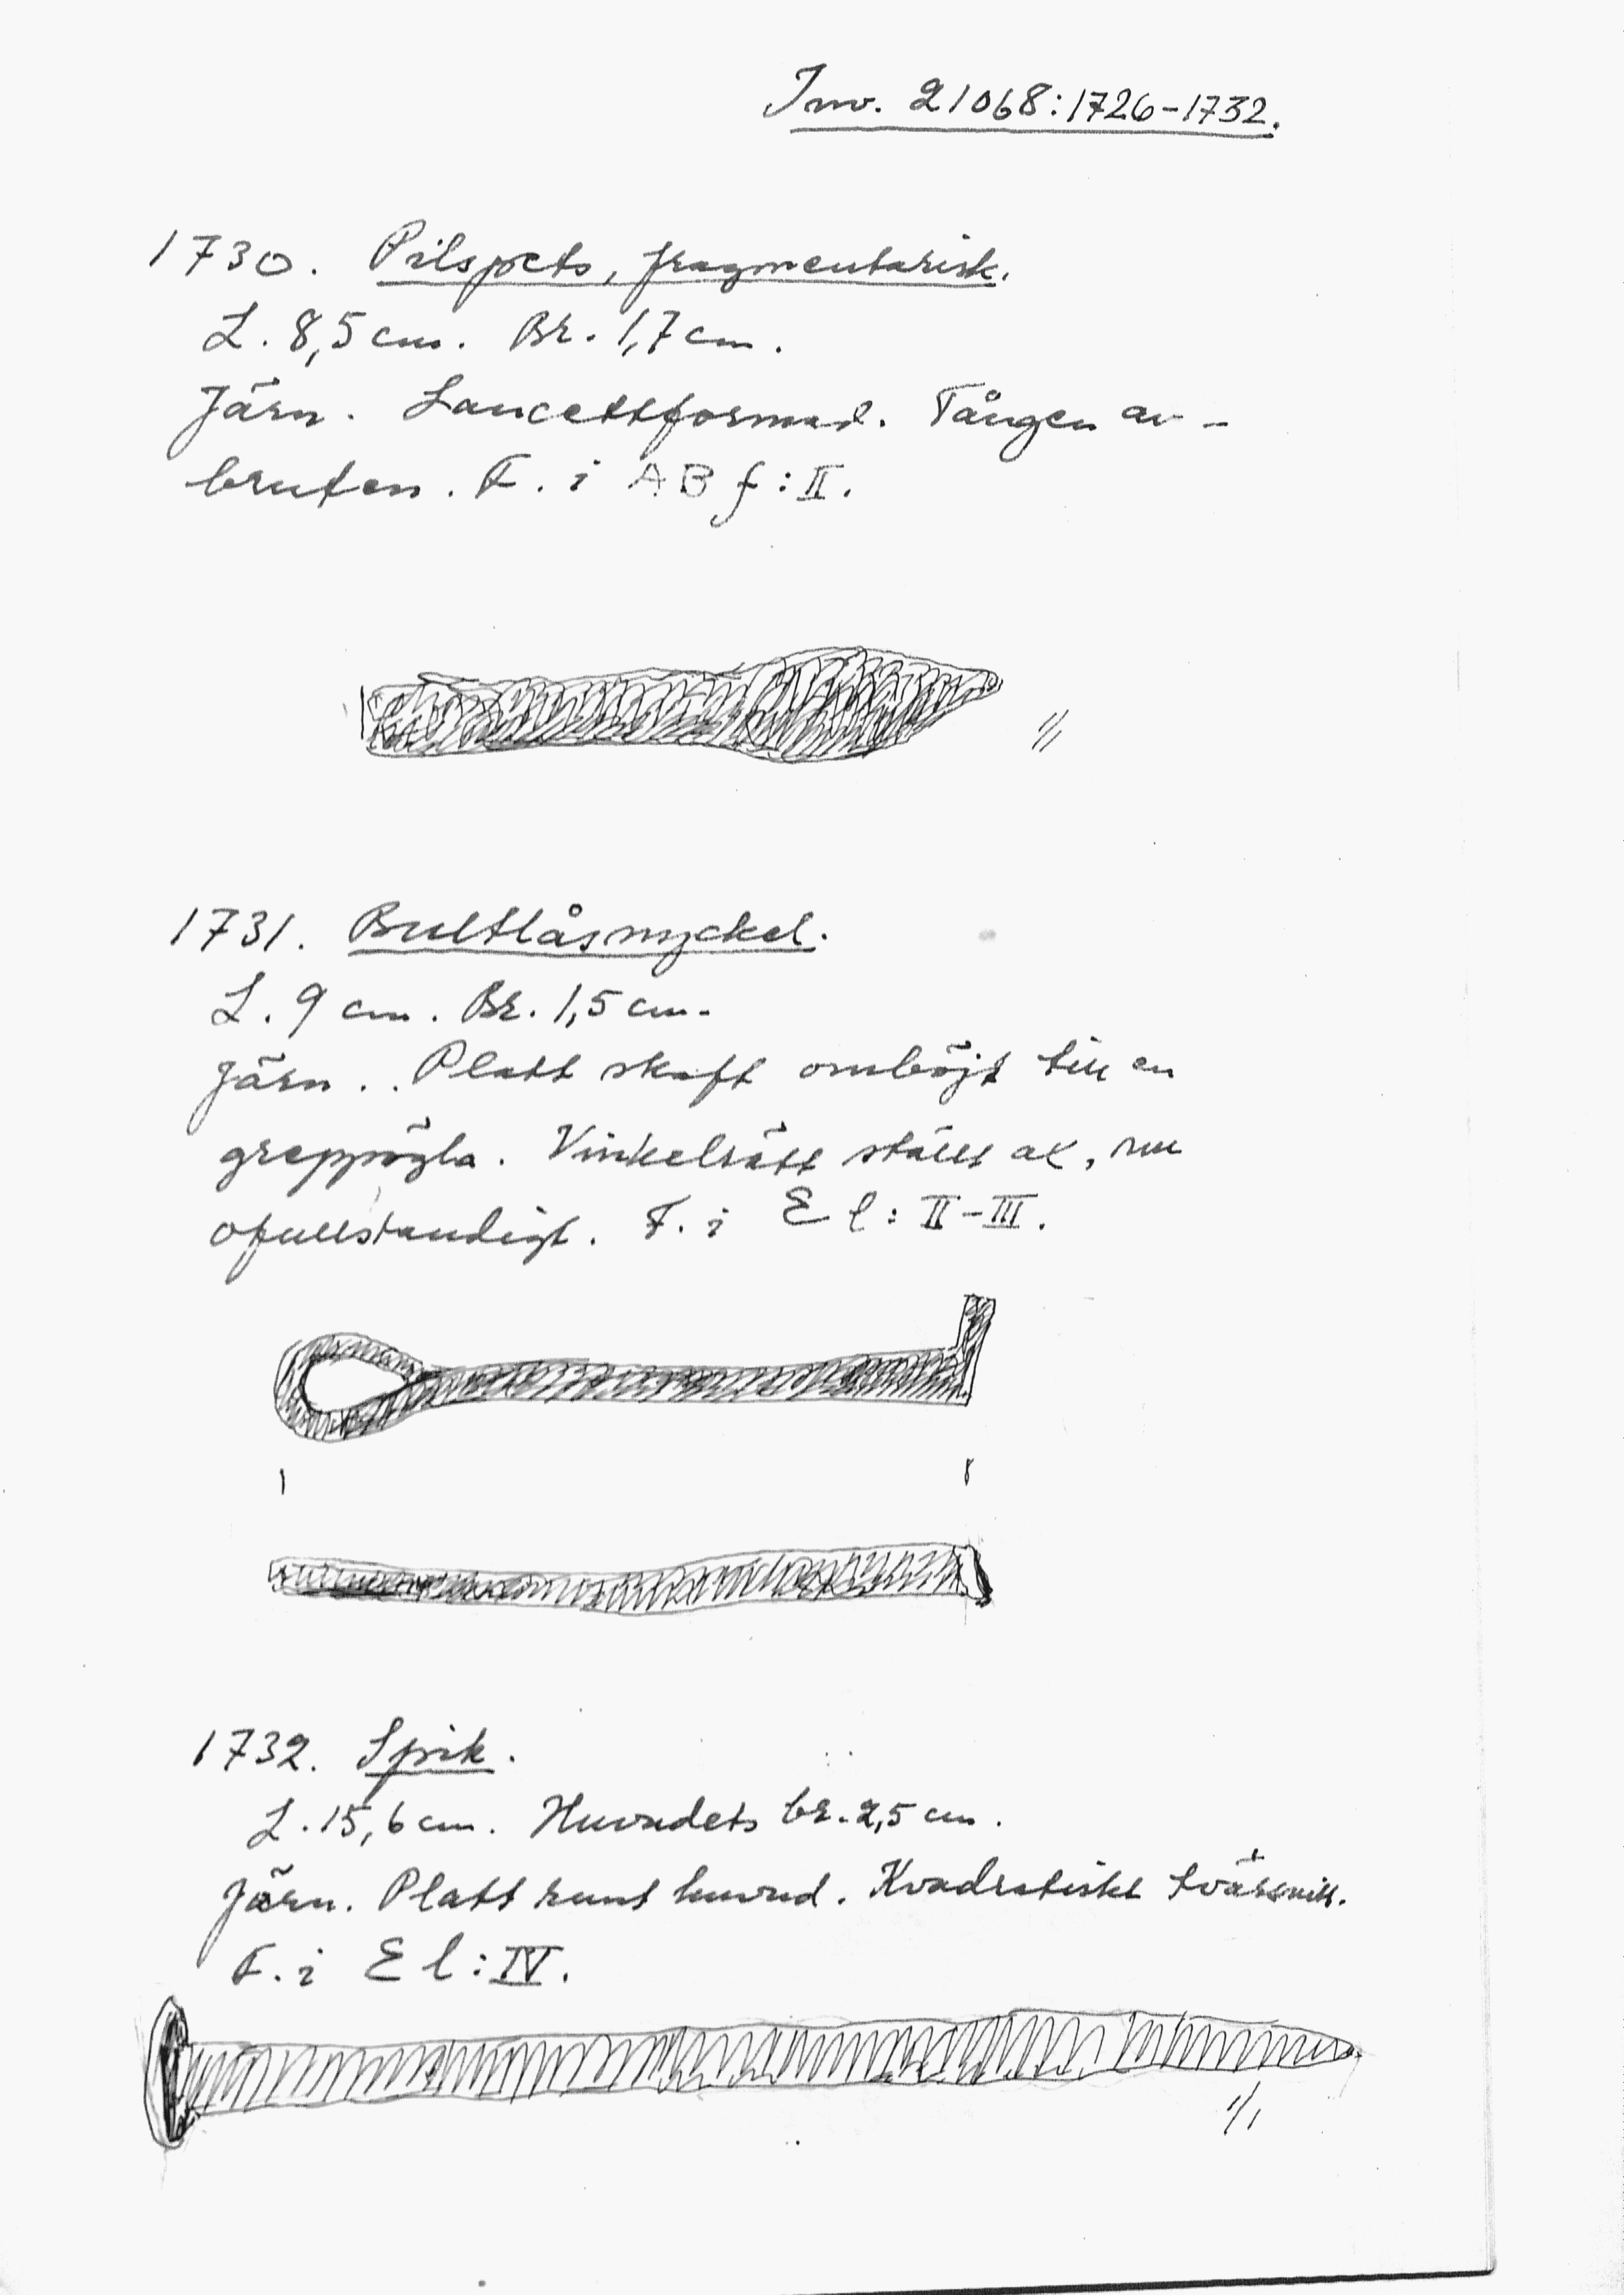 Inv. 21068:1726-1732.
1730. Pilspets, fragmentarisk.
L. 8,5 cm. Br. 1,7 cm.
Järn. Lancettformad. Tången av-
bruten. F. i A B f : II.
1/1
1731. Bultlåsnyckel.
L. 9 cm. Br. 1,5 cm.
Järn.. Platt skaft omböjt till en
greppögla. Vinkelrätt ställt ax, nu
ofullständigt. F. i E l : II-III.
1732. Spik.
L. 15,6 cm. Huvudets br. 2,5 cm.
Järn. Platt runt huvud. Kvadratiskt tvärsnitt.
F. i E l : IV.
1/1